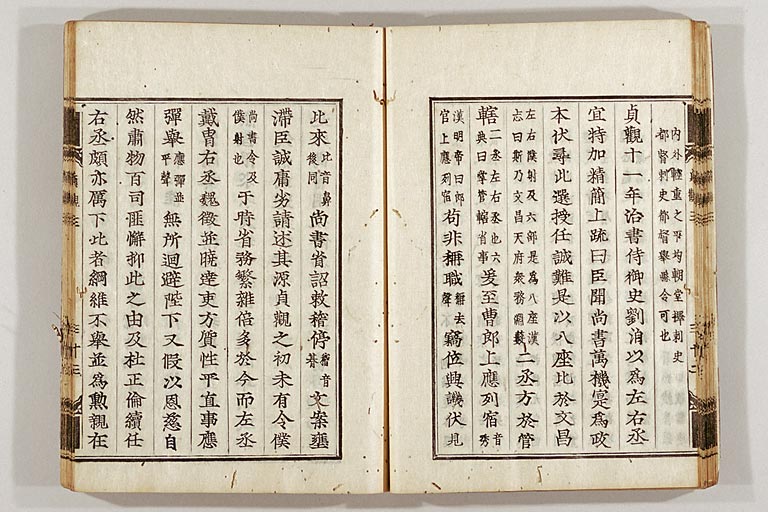 內外輕重之平均朝堂擇刺史
都督刺史都督舉縣令可也
貞觀十一年治書侍御史劉洎以爲左右丞
宜特加精簡上疏曰臣聞尚書萬機寔爲政
本伏尋此選授任誠難是以八座比於文昌
左右僕射及六部是爲八座漢志曰斯乃文昌天府衆務淵藪二丞方於管
轄二丞左右丞也六典曰掌管轄省事爰至曹郎上應列宿音秀
漢明帝曰郎官上應列宿苟非稱職稱去聲竊位興譏伏見
比來比音鼻後同尚書省詔敕稽停文案壅
滯臣誠庸劣請述其源貞觀之初未有令僕
尚書令及僕射也于時省務繁雜倍多於今而左丞
戴冑右丞魏徵並曉達吏方質性平直事應
彈舉應彈並平聲無所迴避陛下又假以恩慈自
然肅物百司匪懈抑此之由及杜正倫續任
右丞頗亦厲下比者綱維不舉並爲勳親在